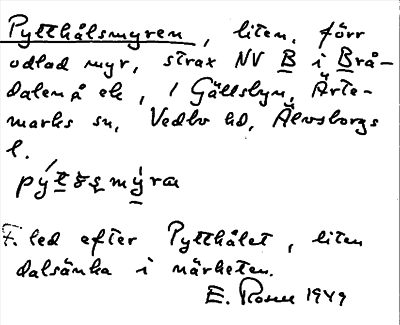 Pytthålsmyren, liten, förr
odlad myr, strax NV B i Brå-
dalen å ek, i Gällsbyn, Ärte-
marks sn, Vedbo hd, Älvsborgs
l.
F. led efter Pytthålet, liten
dalsänka i närheten.
E. 1949